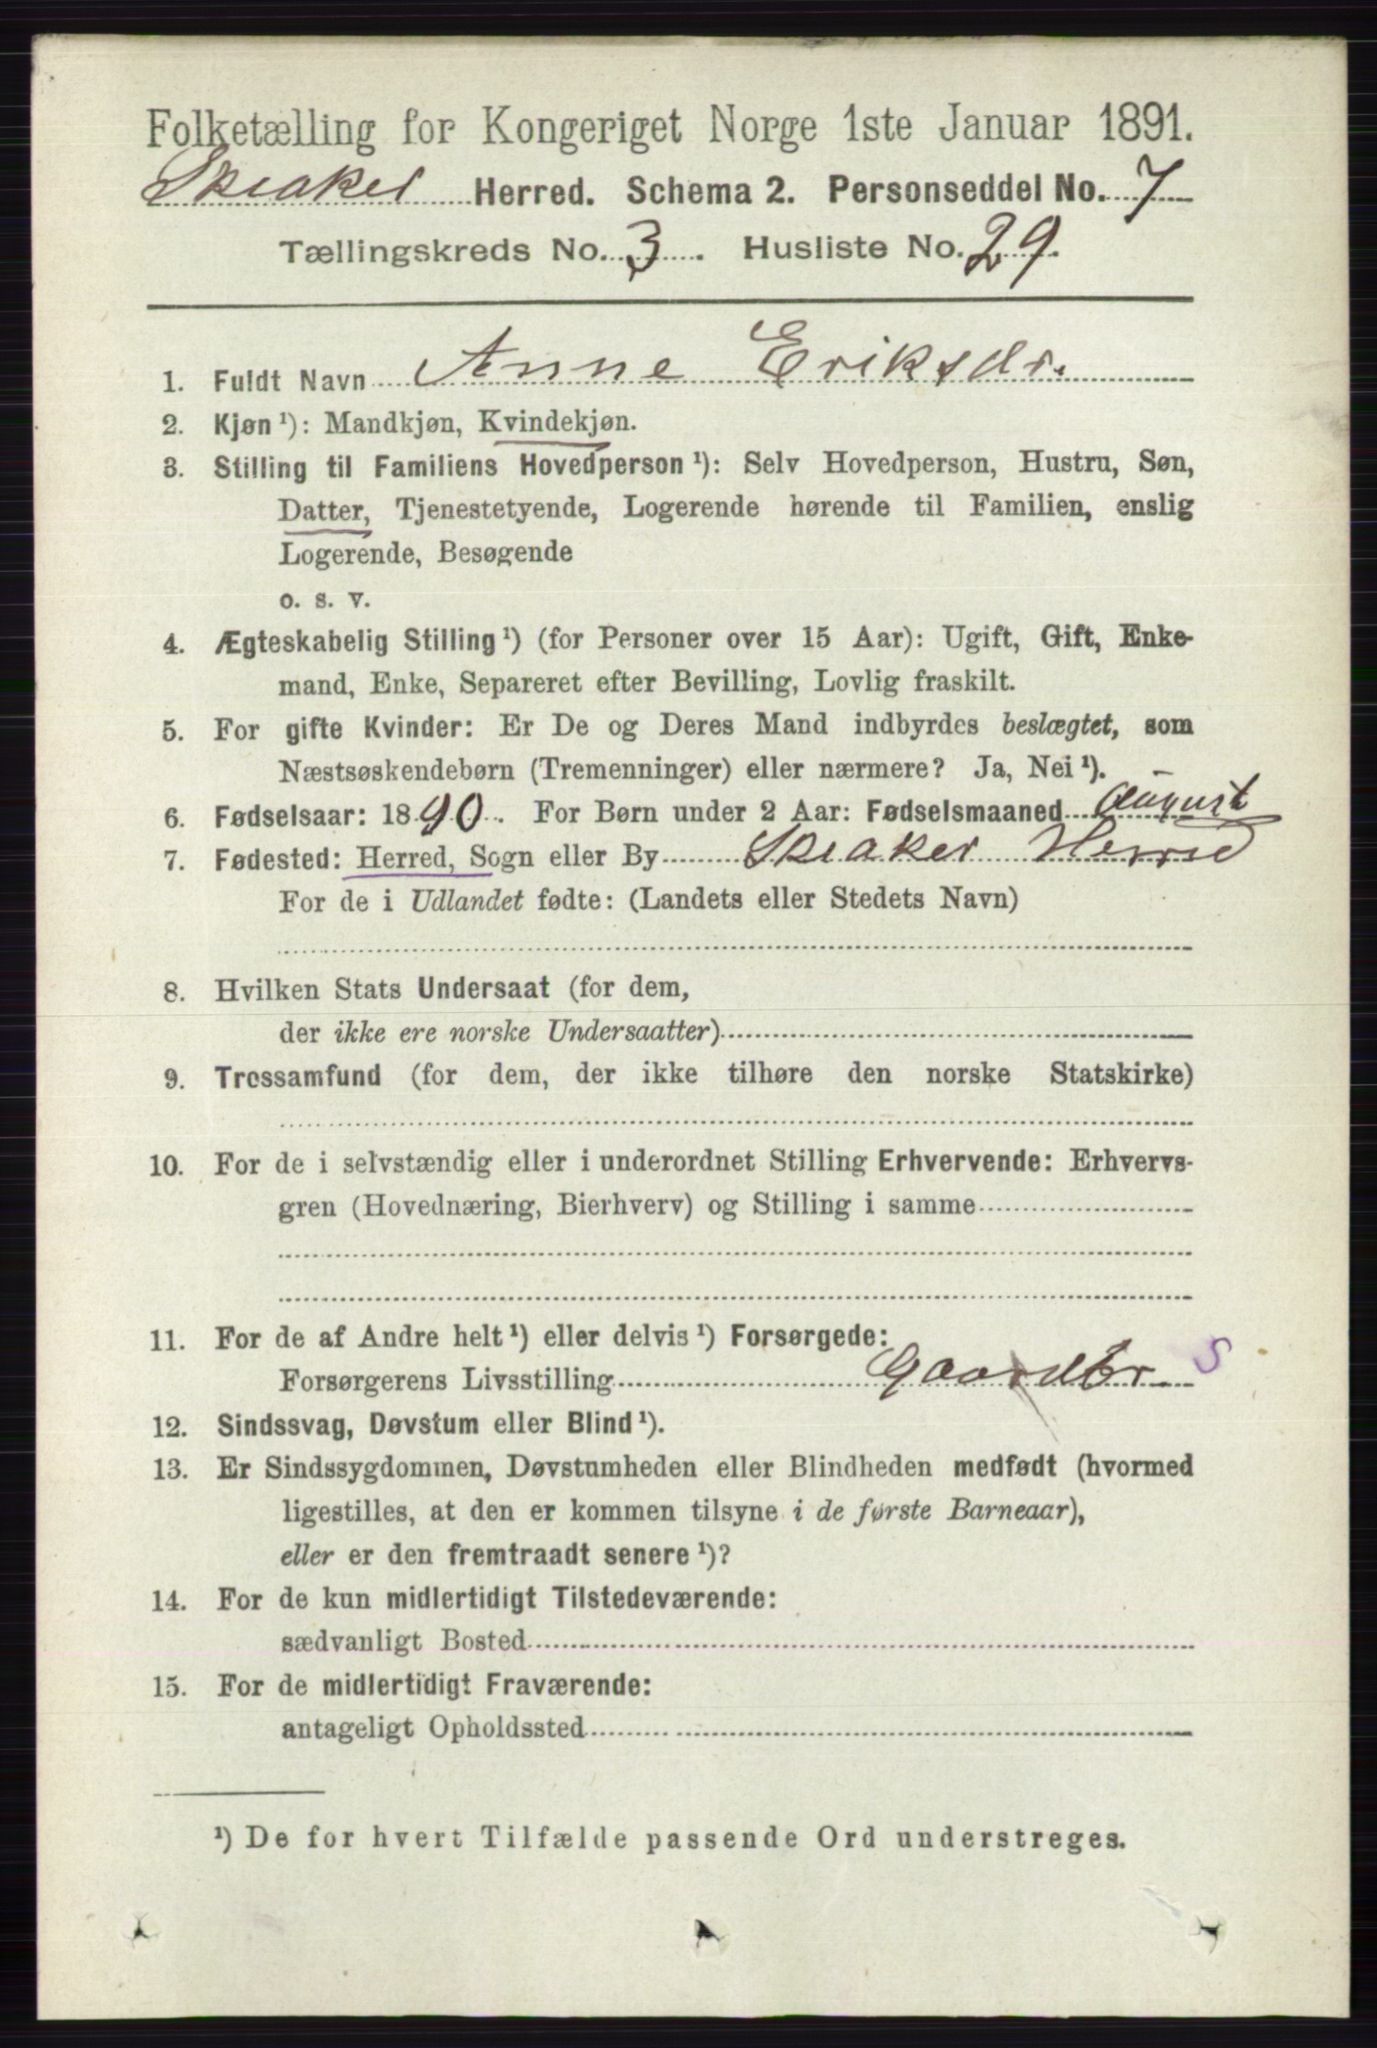 Folketælling for Kongeriget Norge 1ste Januar 1891.
Skiaker Herred. Schema 2. Personseddel No. 7
Tællingskreds No. 3. Husliste No. 29.
1. Fuldt Navn Anne Eriksdr.
2. Kjøn ¹): Mandkjøn, Kvindekjøn.
3. Stilling til Familiens Hovedperson ¹): Selv Hovedperson, Hustru, Søn,
Datter, Tjenestetyende, Logerende hørende til Familien, enslig
Logerende, Besøgende
o. s. v.
4. Ægteskabelig Stilling ¹) (for Personer over 15 Aar): Ugift, Gift, Enke-
mand, Enke, Separeret efter Bevilling, Lovlig fraskilt.
5. For gifte Kvinder: Er De og Deres Mand indbyrdes beslægtet, som
Næstsøskendebørn (Tremenninger) eller nærmere? Ja, Nei ¹).
6. Fødselsaar: 1890. For Børn under 2 Aar: Fødselsmaaned August
7. Fødested: Herred, Sogn eller By Skiaker Herred
For de i Udlandet fødte: (Landets eller Stedets Navn)
8. Hvilken Stats Undersaat (for dem,
der ikke ere norske Undersaatter)
9. Trossamfund (for dem, der ikke tilhøre den norske Statskirke)
10. For de i selvstændig eller i underordnet Stilling Erhvervende: Erhvervs-
gren (Hovednæring, Bierhverv) og Stilling i samme
11. For de af Andre helt ¹) eller delvis ¹) Forsørgede:
Forsørgerens Livsstilling Gaardbr. S
12. Sindssvag, Døvstum eller Blind ¹).
13. Er Sindssygdommen, Døvstumheden eller Blindheden medfødt (hvormed
ligestilles, at den er kommen tilsyne i de første Barneaar),
eller er den fremtraadt senere ¹)?
14. For de kun midlertidigt Tilstedeværende:
sædvanligt Bosted
15. For de midlertidigt Fraværende:
antageligt Opholdssted
¹) De for hvert Tilfælde passende Ord understreges.